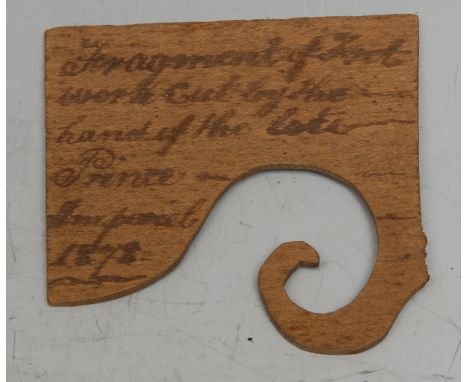 Fragment of Fret
work Cut by the
hand of the late
Prince
Imperial
1878